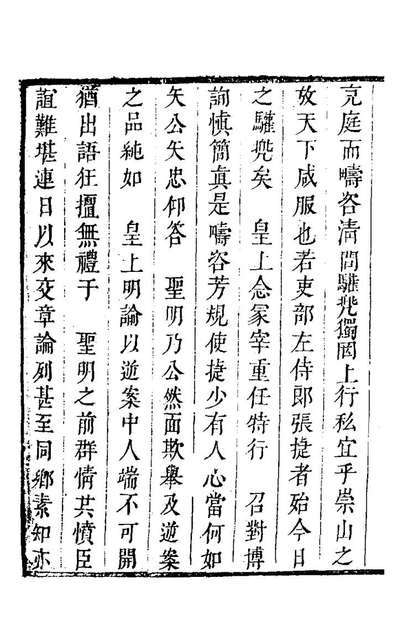 克庭而疇咨清問驩兠獨罔上行私宜乎崇山之
放天下咸服也若吏部左侍郎張捷者殆今日
之驩兠矣　皇上念冢宰重任特行　召對博
詢慎簡真是疇咨芳規使捷少有人心當何如
矢公矢忠仰答　聖明乃公然面欺舉及逆案
之品純如　皇上明諭以逆案中人端不可開
猶出語狂擅無禮于　聖明之前群情共憤臣
誼難堪連日以來交章論列甚至同鄉素知亦